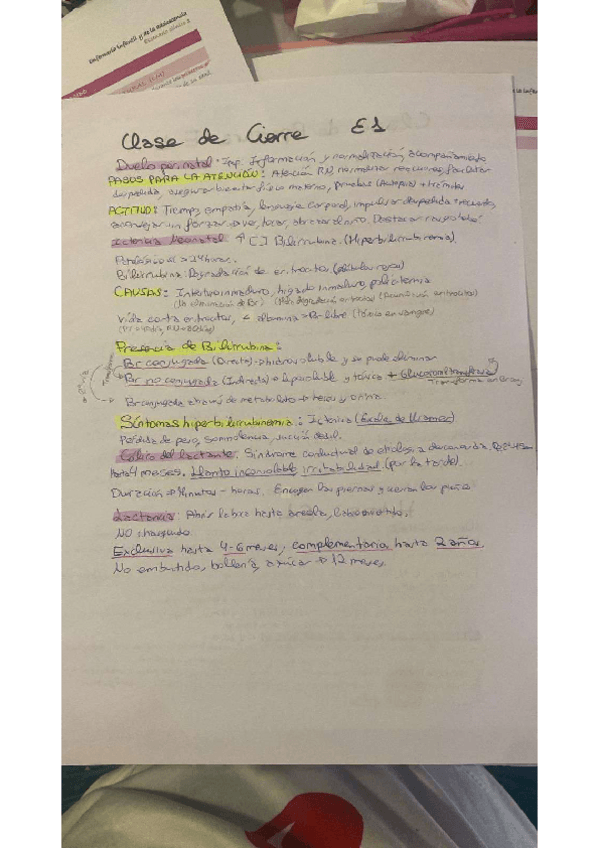 Enfermería Infantil y de la Adolescencia
Clase de Cierre E1
Duelo perinatal: Imp. Información y normalización, acompañamiento
PASOS PARA LA ATENCIÓN: Atención RN, normalizar reacciones, facilitar
despedida, asegurar bienestar físico materno, pruebas (Autopsia) + trámites
ACTITUD: Tiempo, empatía, lenguaje corporal, impulsar despedida + recuerdos,
aconsejar sin forzar
Ictericia Neonatal ↑ [ ] Bilirrubina. (Hiperbilirrubinemia).
Patológico si > 24 horas.
Bilirrubina: Degradación de eritrocitos (glóbulos rojos)
CAUSAS: Intestino inmaduro, hígado inmaduro, policitemia
(la eliminación de Br) (Más degradación eritrocitos)
vida corta eritrocitos, < albumina → Br libre (Tóxica en sangre)
Presencia de Bilirrubina:
Br conjugada (Directa) → hidrosoluble y se puede eliminar
Br no conjugada (Indirecta) → liposoluble y tóxica + Glucoroniltransferasa
Transforma en Br conj
Br conjugada a través de metabolito → heces y orina
Síntomas hiperbilirrubinemia: Ictericia (Escala de Kramer)
Pérdida de peso, somnolencia, succión débil.
Cólico del lactante: Síndrome conductual de etiología desconocida.
hasta 4 meses. Llanto inconsolable irritabilidad (por la tarde).
Duración → Minutos - horas. Encogen las piernas y cierran los puños
Lactancia: Abrir la boca hasta areola,
NO chasquido
Exclusiva hasta 4-6 meses, complementaria hasta 2 años.
No embutido, bollería, azúcar → 12 meses